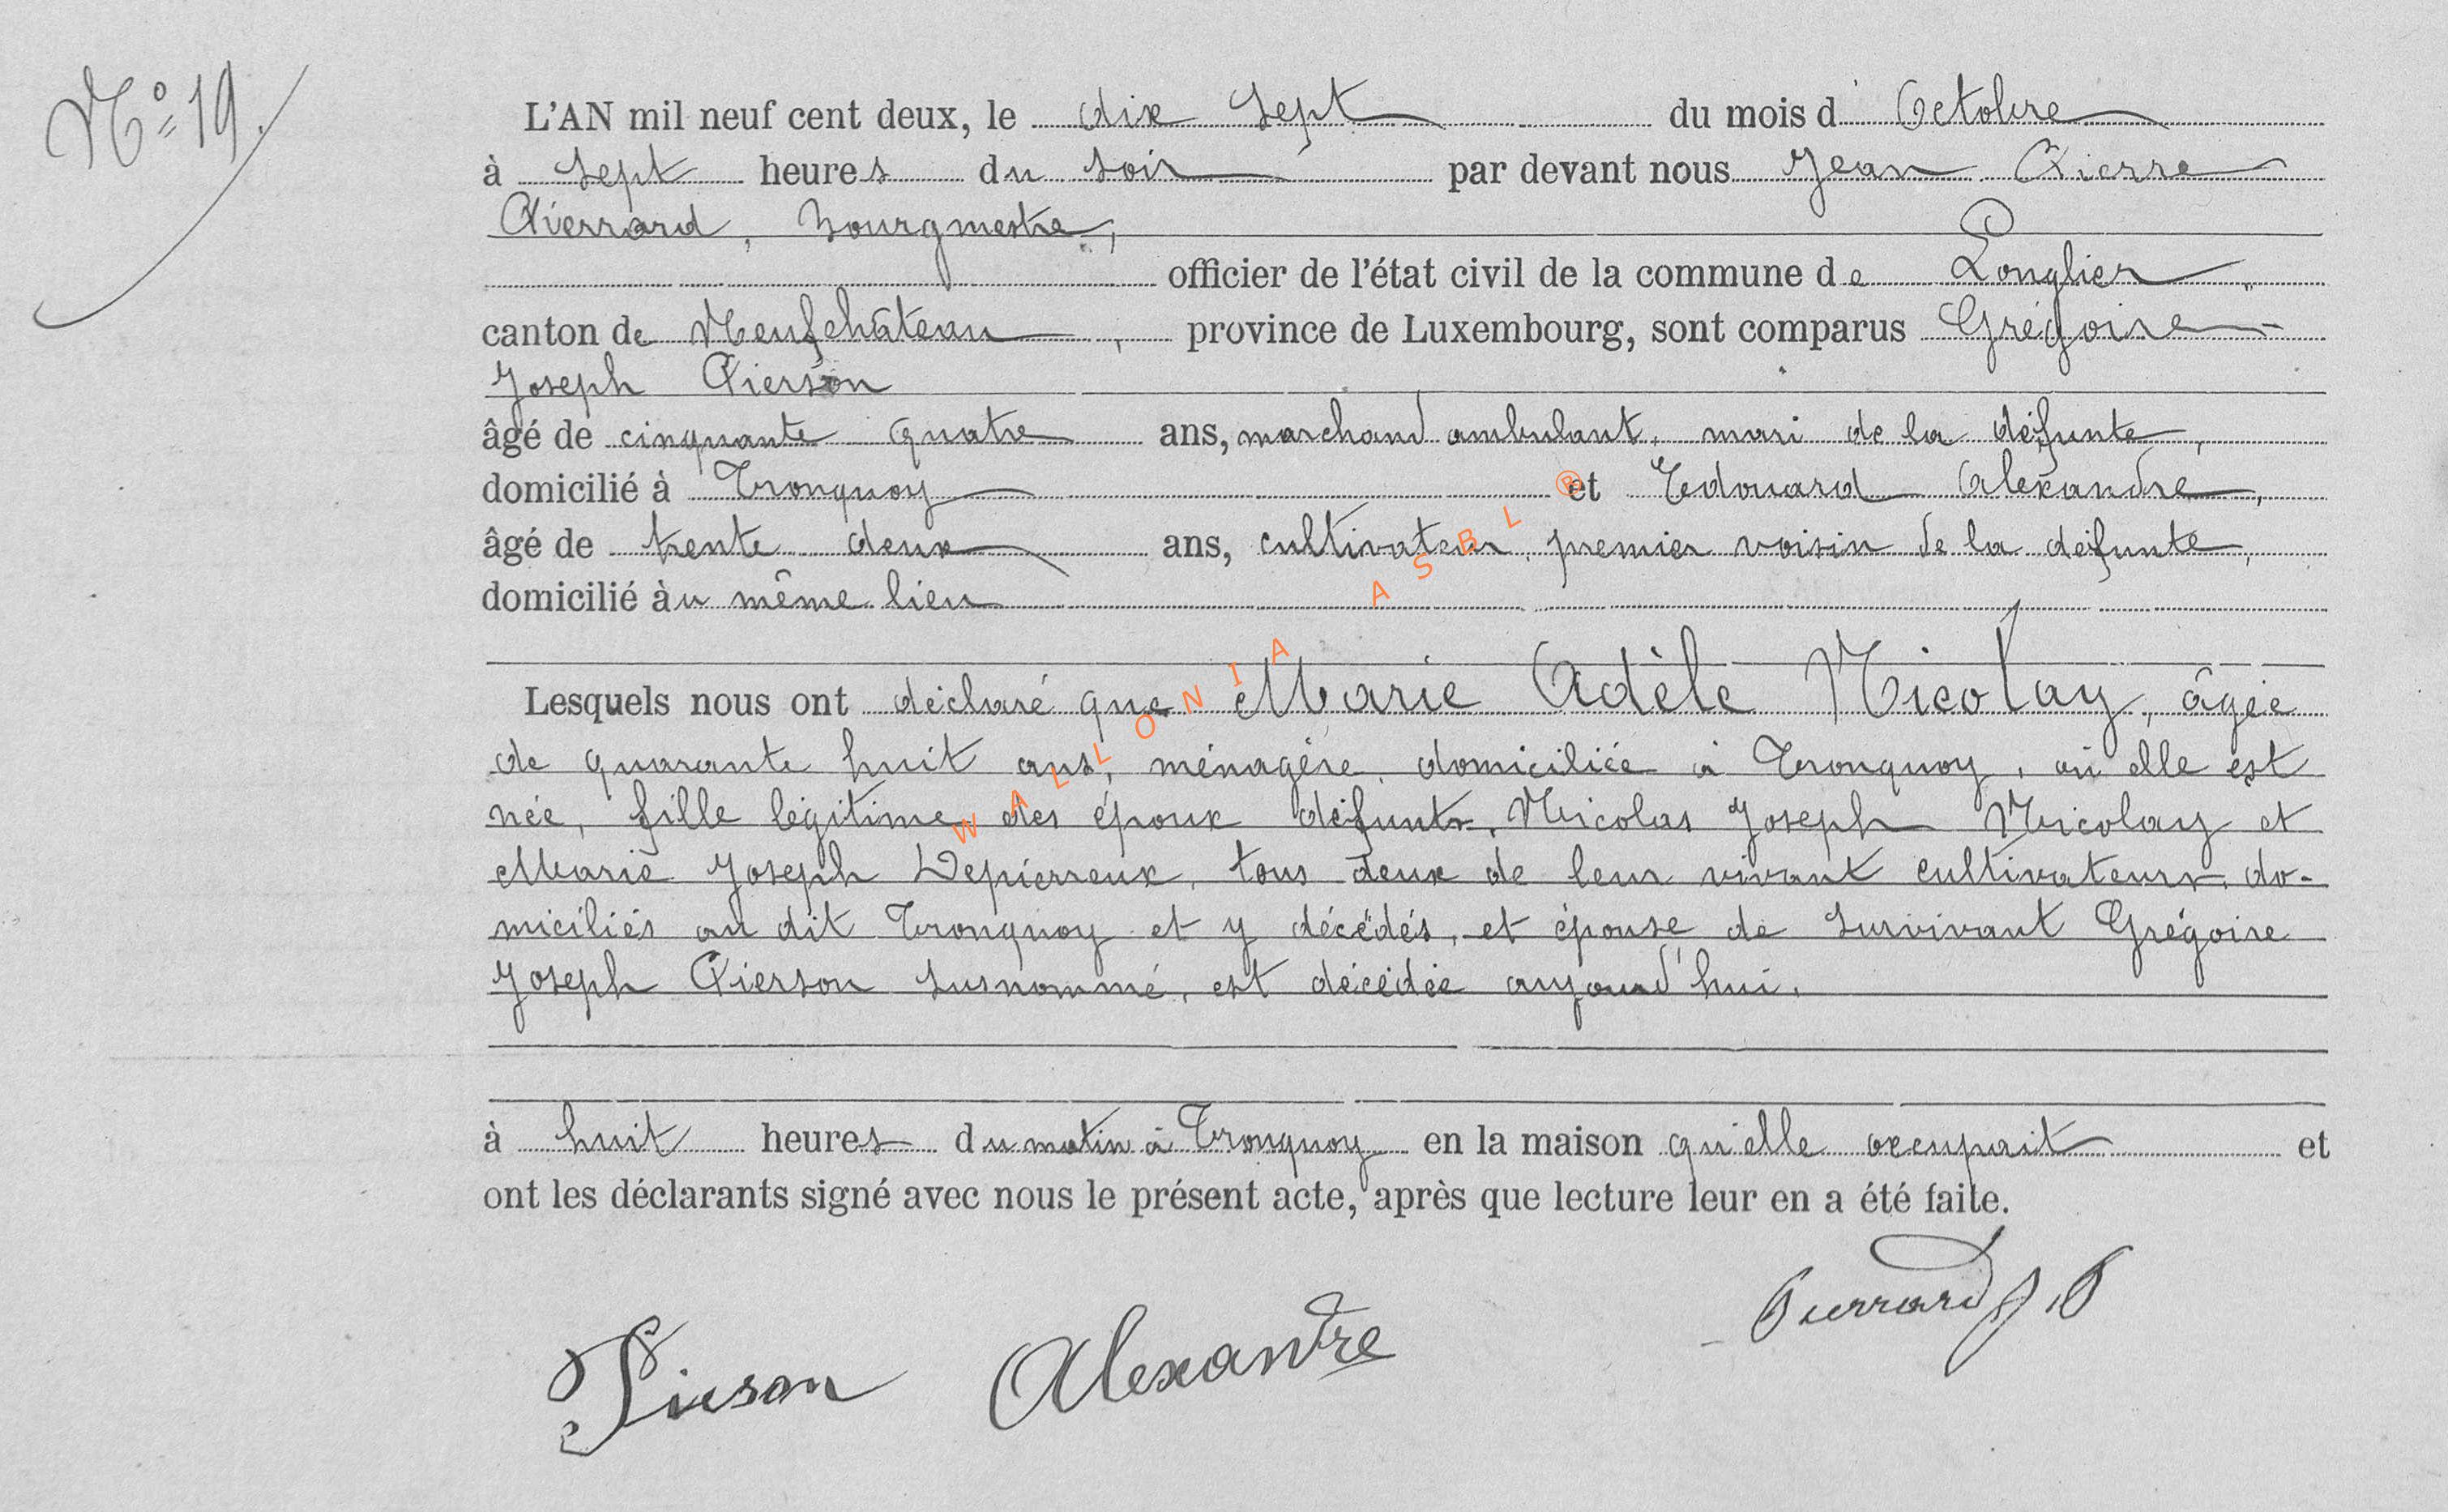 N° 19.
L'AN mil neuf cent deux, le dix sept du mois d'Octobre
à sept heures du soir par devant nous Jean Pierre
Pierrard, bourgmestre,
officier de l'état civil de la commune de Longlier,
canton de Neufchâteau, province de Luxembourg, sont comparus Grégoire
Joseph Pierson
âgé de cinquante quatre ans, marchand ambulant, mari de la défunte,
domicilié à Tronquoy et Edouard Alexandre,
âgé de trente deux ans, cultivateur, premier voisin de la défunte,
domicilié àu même lieu
Lesquels nous ont déclaré que Marie Adèle Nicolay, âgée
de quarante huit ans, ménagère, domiciliée à Tronquoy, où elle est
née, fille légitime des époux défunts, Nicolas Joseph Nicolay et
Marie Joseph Depierreux, tous deux de leur vivant cultivateurs, do-
miciliés au dit Tronquoy et y décédés, et épouse de survivant Grégoire
Joseph Pierson susnommé, est décédée aujourd'hui.
à huit heures du matin à Tronquoy en la maison qu'elle occupait et
ont les déclarants signé avec nous le présent acte, après que lecture leur en a été faite.
Pierson Alexandre Pierrard J.P
WALLONIA ASBL ®